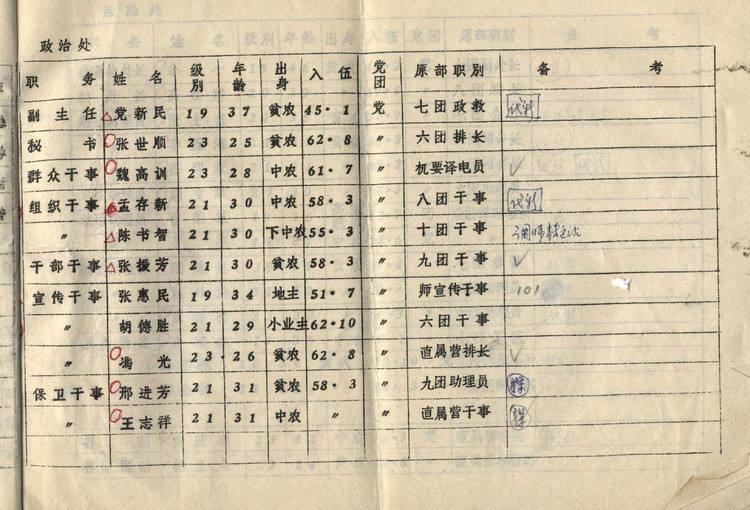 政治处
职务 姓名 级别 年龄 出身 入伍 党团 原部职别 备考
副主任 党新民 19 37 贫农 45·1 党 七团政教
秘书 张世顺 23 25 贫农 62·8 〃 六团排长
群众干事 魏高训 23 28 中农 61·7 〃 机要译电员 ✓
组织干事 孟存新 21 30 中农 58·3 〃 入团干事
〃 陈书智 21 30 下中农 55·3 〃 十团干事
干部干事 张援芳 21 30 贫农 58·3 〃 九团干事 ✓
宣传干事 张惠民 19 34 地主 51·7 〃 师宣传干事 101
〃 胡德胜 21 29 小业主 62·10 〃 六团干事
〃 冯光 23·26 贫农 62·8 〃 直属营排长 ✓
保卫干事 邢进芳 21 31 贫农 58·3 〃 九团助理员
〃 王志祥 21 31 中农 〃 〃 直属营干事